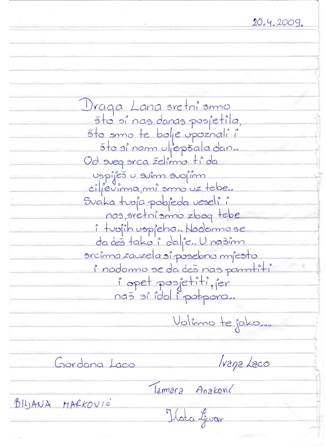 20.4.2009.
Draga Lana sretni smo
što si nas danas posjetila,
što smo te bolje upoznali i
što si nam uljepšala dan..
Od sveg srca želimo ti da
uspiješ u svim svojim
ciljevima, mi smo uz tebe..
Svaka tvoja pobjeda veseli i
nas, sretni smo zbog tebe
i tvojih uspjeha.. Nadamo se
da ćeš tako i dalje.. U našim
srcima zauzela si posebno mjesto
i nadamo se da ćeš nas pamtiti
i opet posjetiti, jer
naš si idol i potpora..
Volimo te jako....
Gordana Laco
Ivana Laco
Tamara
BILJANA MARKOVIĆ